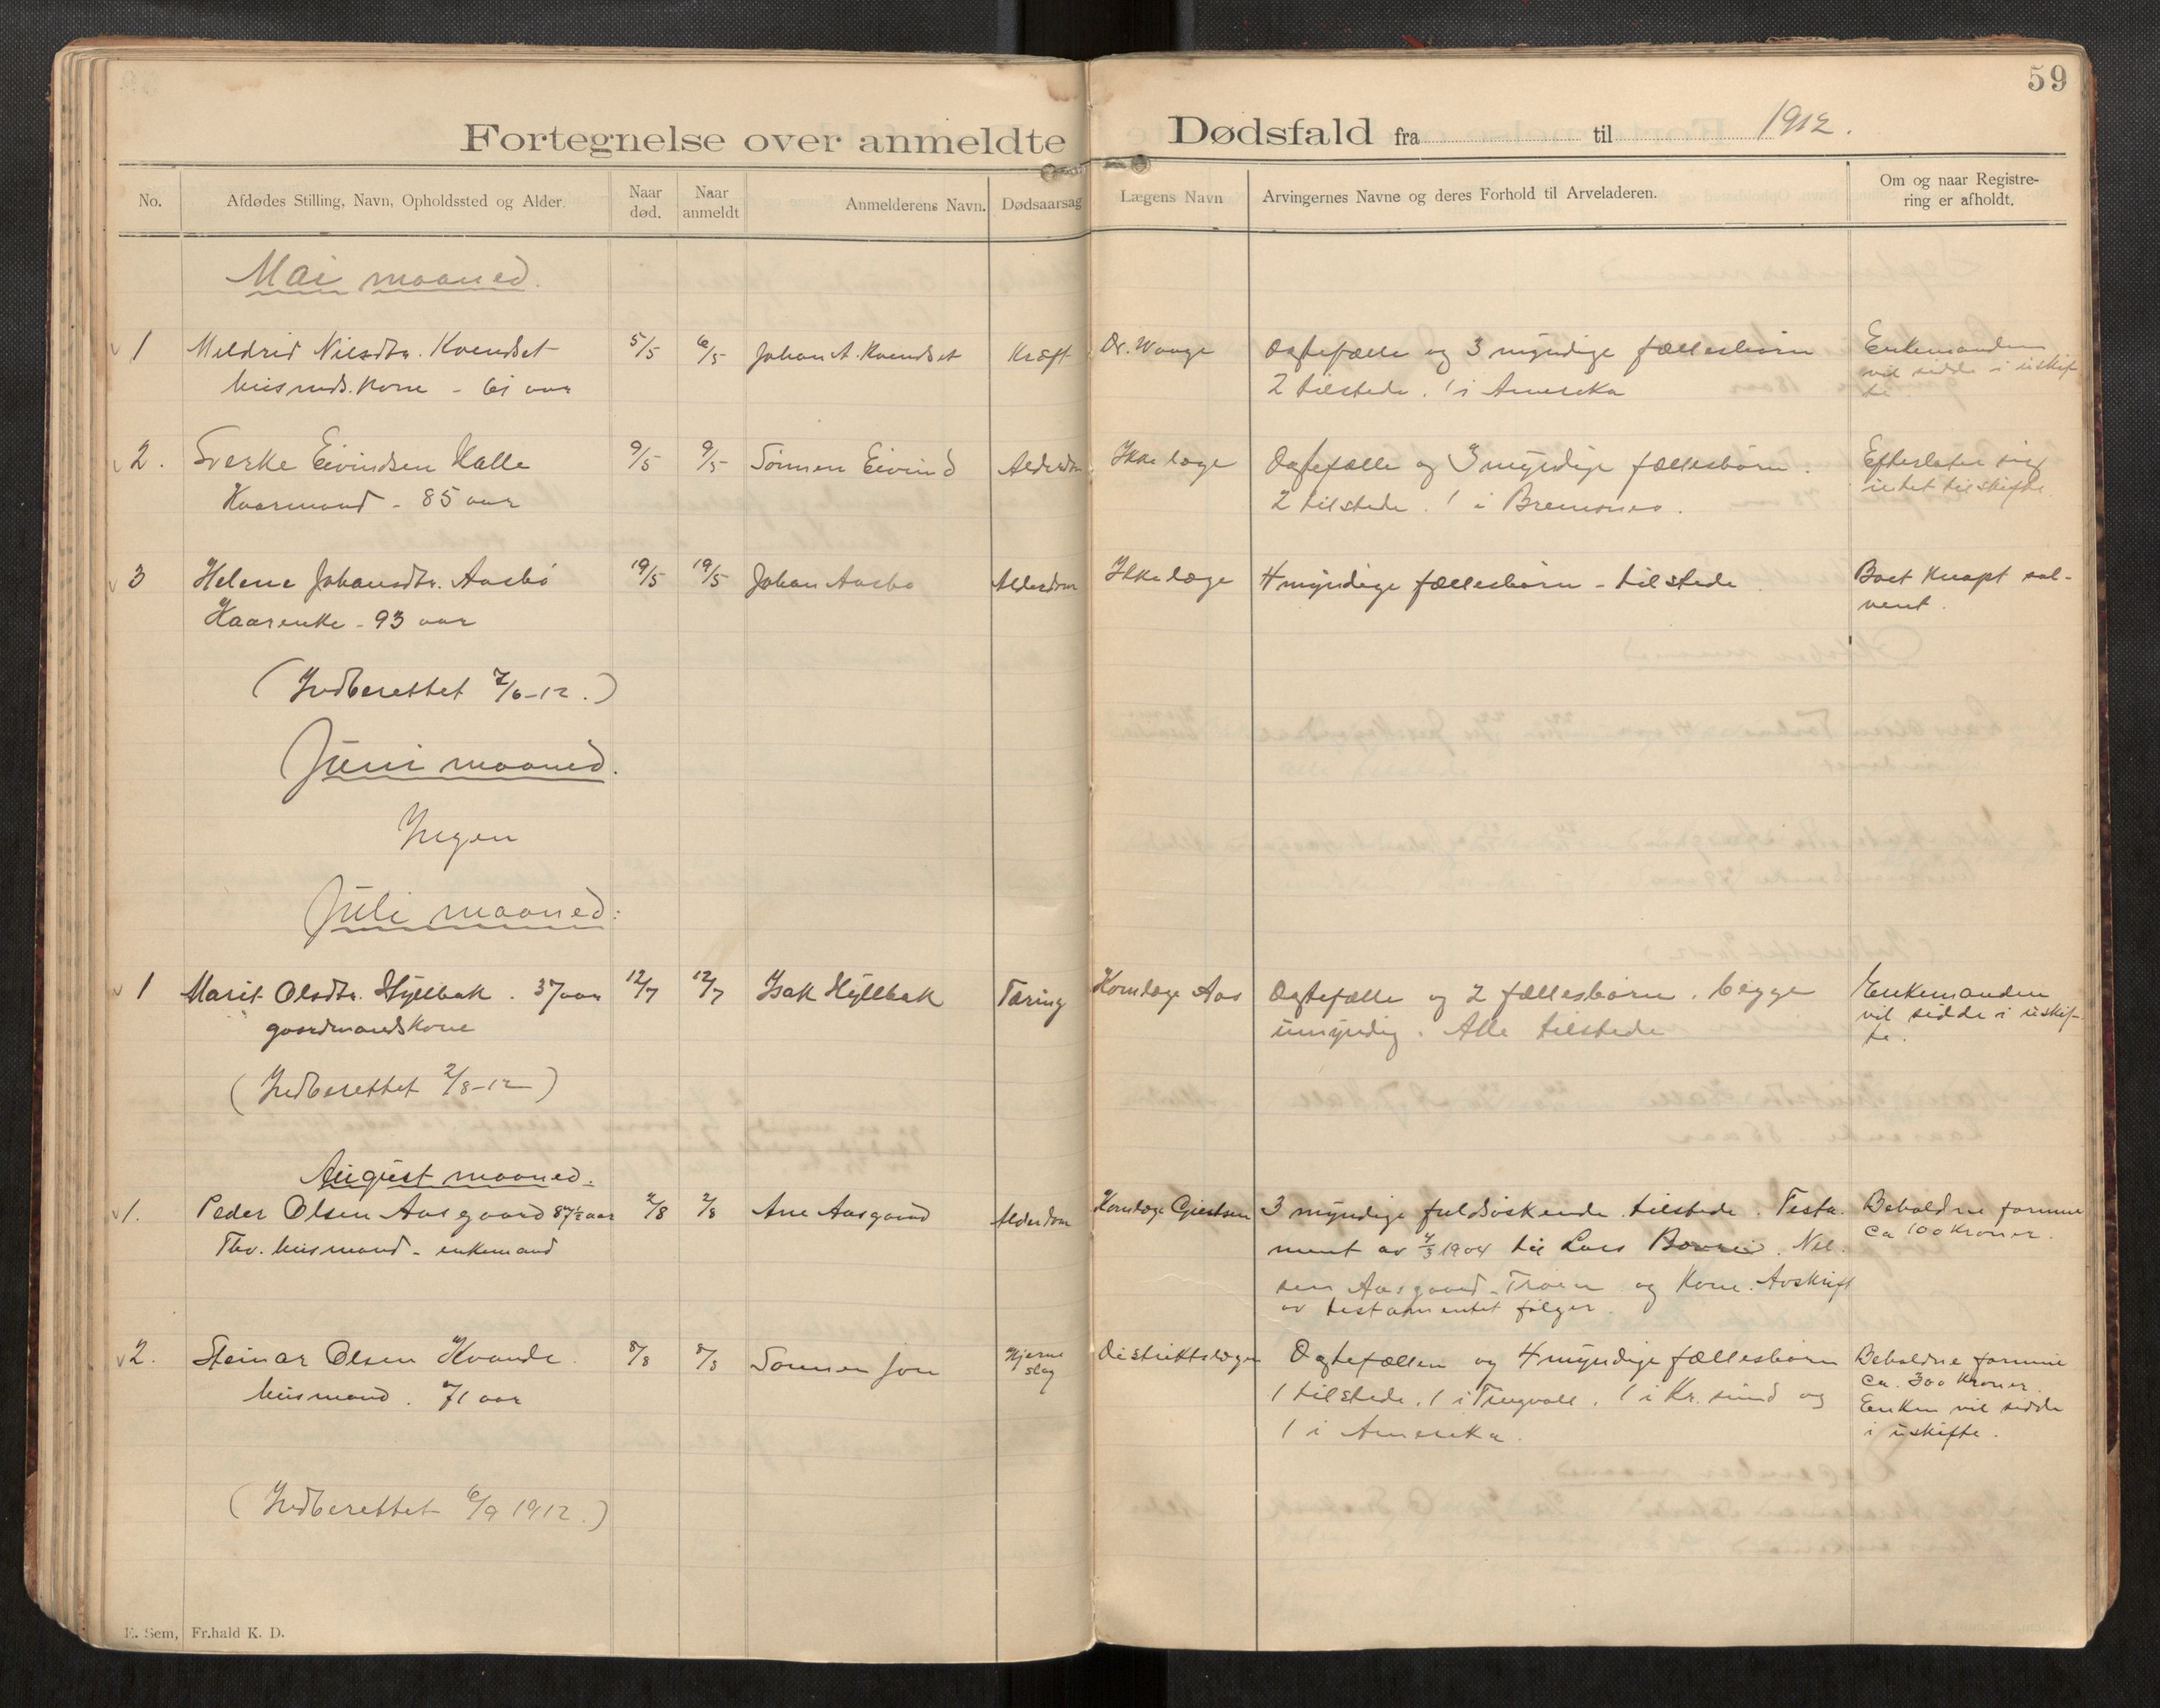 59
Fortegnelse over anmeldte Dødsfald fra til 1912.
No. Afdødes Stilling, Navn, Opholdssted og Alder. Naar død. Naar anmeldt Anmelderens Navn. Dødsaarsag Lægens Navn Arvingernes Navne og deres Forhold til Arveladeren. Om og naar Registrering er afholdt.
Mai maaned.
1 Meldrid Nilsdtr. Kvendset 5/5 6/5 Johan A. Kvendset Kræft Dr. Waage Ægtefælle og 3 myndige fællesbørn Enkemanden
husmds. kone - 61 aar 2 tilstede. 1 i Amerika vil sidde i uskif-
te.
2. Sverke Eivindsen Halle 9/5 9/5 Sønnen Eivind Alderdom Ikke læge Ægtefælle og 3 myndige fællesbørn. Efterlater sig
Kaarmand - 85 aar 2 tilstede. 1 i Bremsnes. intet til skifte.
3 Helene Johansdtr. Aasbø 19/5 19/5 Johan Aasbø Alderdom Ikke læge 4 myndige fællesbørn - tilstede Boet knapt sol-
Kaarenke - 93 aar vent.
(Indberettet 7/6-12.)
Juni maaned.
Ingen
Juli maaned:
1 Marit Olsdtr. Hyllbak. 37 aar 12/7 12/7 Isak Hyllbak Tæring Korpslæge Aas Ægtefælle og 2 fællesbørn. begge Enkemanden
gaardmandskone umyndig. Alle tilstede vil sidde i uskif-
te.
(Indberettet 2/8-12)
August maaned.
1. Peder Olsen Aasgaard 87½ aar 2/8 2/8 Ane Aasgaard Alderdom Korpslæge 3 myndige fuldsøskende tilstede. Testa- Beholdne formue
Fhv. husmand - enkemand ment av 4/3 1904 til Lars . Nil- ca 100 kroner.
sen Aasgaard-Trøen og kone. Avskrift
av testamentet følger.
2. Steinar Olsen Kvande. 8/8 8/8 Sønnen Jon Hjerne Distriktslægen Ægtefællen og 4 myndige fællesbørn Beholdne formue
husmand. 71 aar slag 1 tilstede. 1 i Tingvoll. 1 i Kr.sund og ca. 300 kroner.
1 i Amerika. Enken vil sidde
i uskifte.
(Indberettet 6/9 1912.)
E. Sem, Fr.hald K. D.